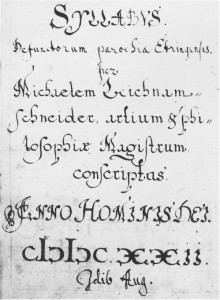 SYLLABVS.
Defunctorum parochiæ Ebringensis.
per
Michaelem Leichnam=
schneider, artium & phi=
losophiæ Magistrum
conscriptas.
ANNO HOMINIS DEI.
cIɔIɔc. XXII.
Idib Aug.